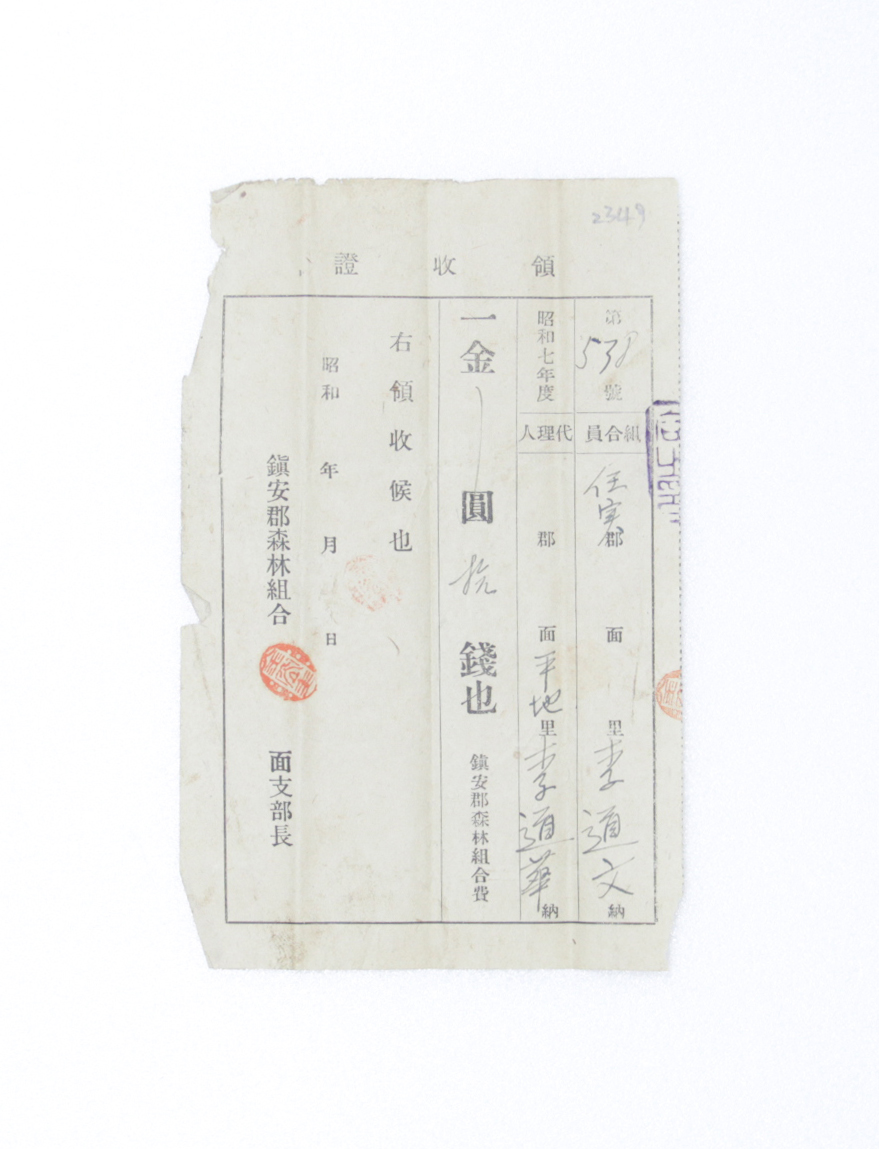 2349
領收證
第538號
組合員 任実郡 面 里 李道文 納
昭和七年度
代理人 郡 面 平地里 李道華 納
一金 圓 拾 錢也 鎭安郡森林組合費
右領收候也
昭和 年 月 日
鎭安郡森林組合 面支部長